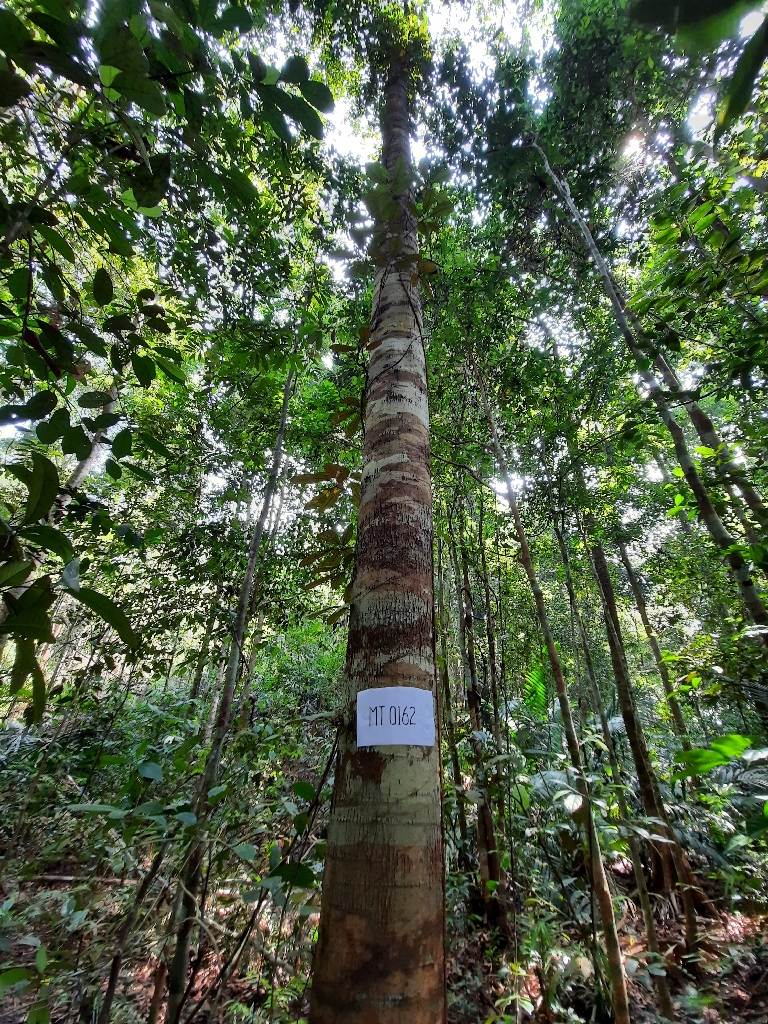 MT 0162